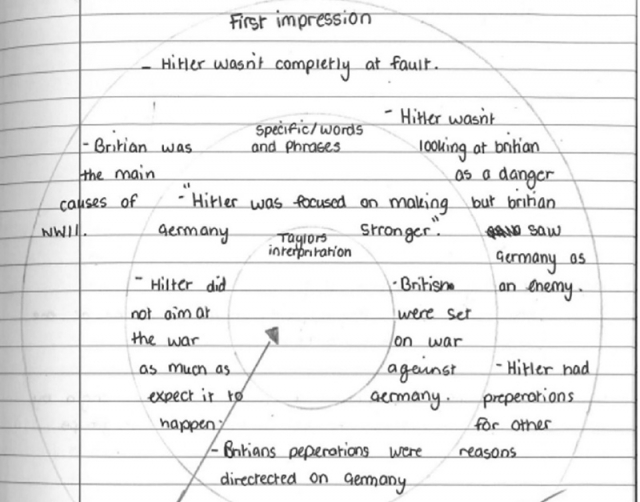 First impression
- Hitler wasn't completly at fault.
- Hitler wasn't
looking at britian
as a danger
but britian
saw
Germany as
an enemy.
- Britian was
the main
causes of
WWII.
specific/words
and phrases
- "Hitler was focused on making
Germany stronger."
Taylors
interpritation
- Hilter did
not aim at
the war
as much as
expect it to
happen.
- British
were set
on war
against
Germany.
- Hitler had
preperations
for other
reasons
- Britians peperations were
directrected on Germany